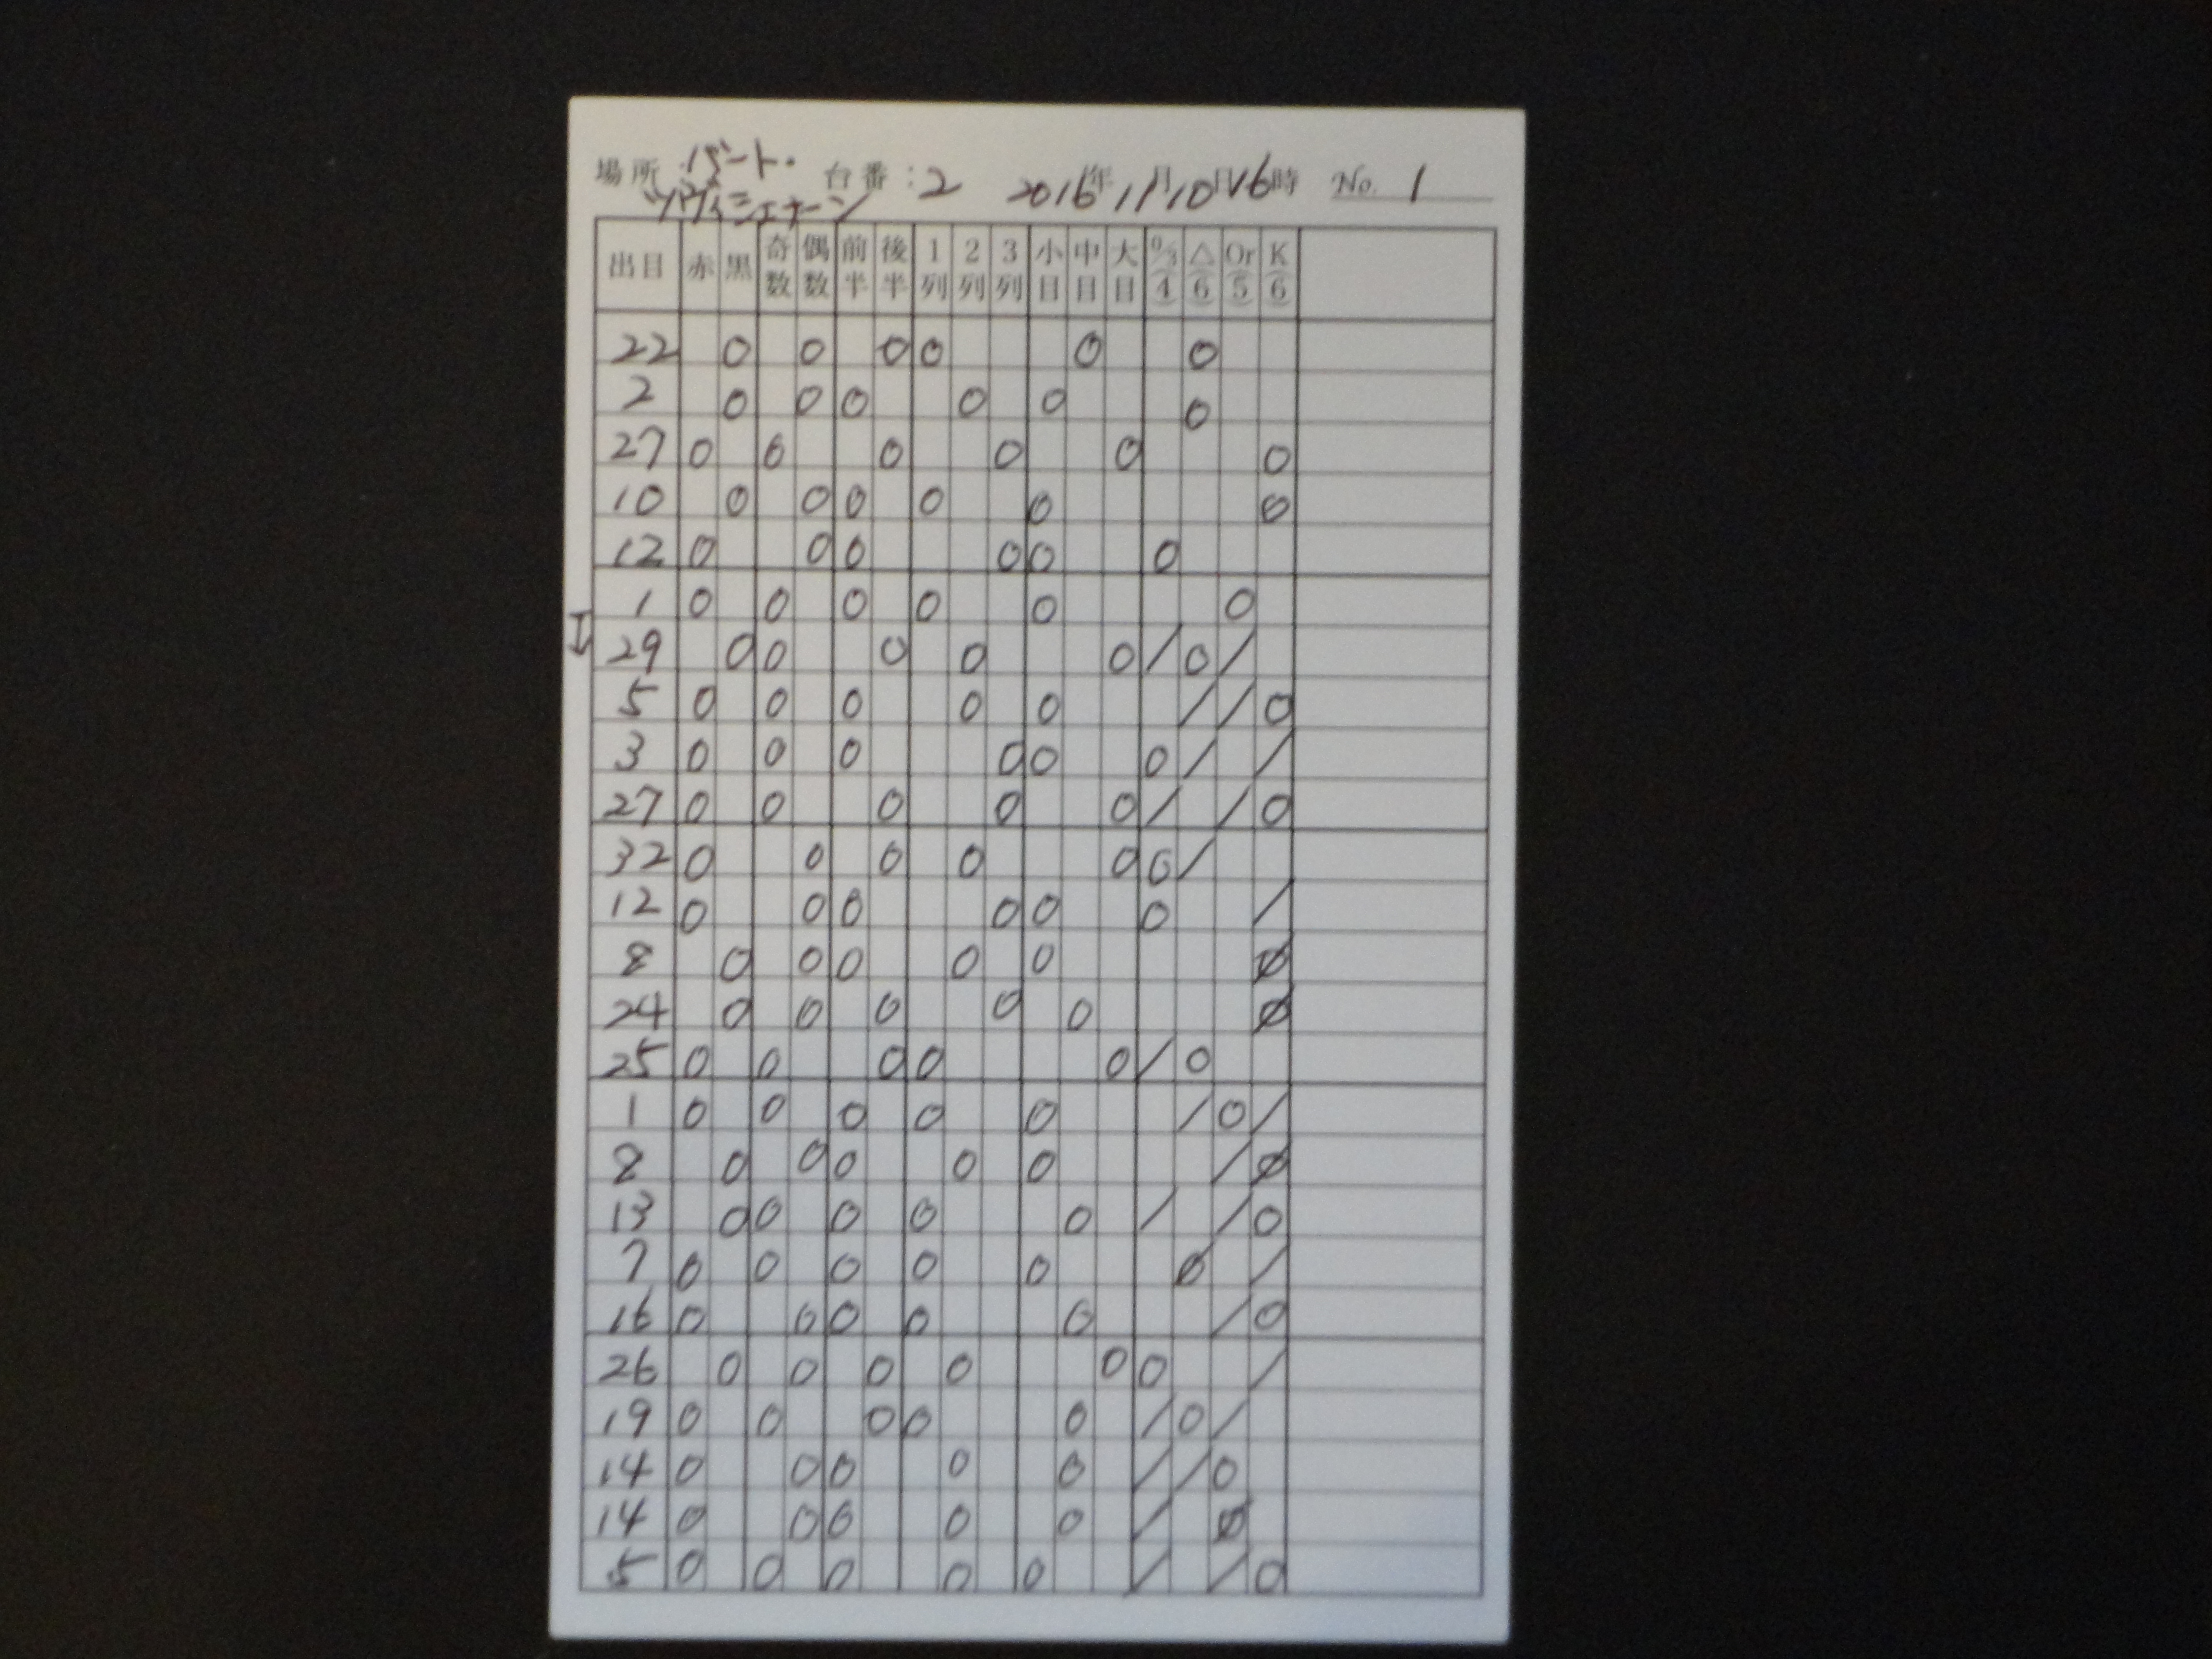 場所:バート・ 台番:2 2016年11月10日16時 No. 1
ツヴィシェナーン
出目 赤 黒 奇数 偶数 前半 後半 1列 2列 3列 小目 中目 大目 0/3 4 △ 6 Or 5 K 6
22 0 0 0 0 0 0
2 0 0 0 0 0 0
27 0 0 0 0 0 0
10 0 0 0 0 0 0
12 0 0 0 0 0 0
1 0 0 0 0 0 0
29 0 0 0 0 0 / 0 /
5 0 0 0 0 0 / / 0
3 0 0 0 0 0 0 / /
27 0 0 0 0 0 / / 0
32 0 0 0 0 0 0 /
12 0 0 0 0 0 0 /
8 0 0 0 0 0 Ø
24 0 0 0 0 0 Ø
25 0 0 0 0 0 / 0
1 0 0 0 0 0 / 0 /
8 0 0 0 0 0 / Ø
13 0 0 0 0 0 / / 0
7 0 0 0 0 0 Ø /
16 0 0 0 0 0 / 0
26 0 0 0 0 0 0 /
19 0 0 0 0 0 / 0 /
14 0 0 0 0 0 / / 0
14 0 0 0 0 0 / Ø
5 0 0 0 0 0 / / 0